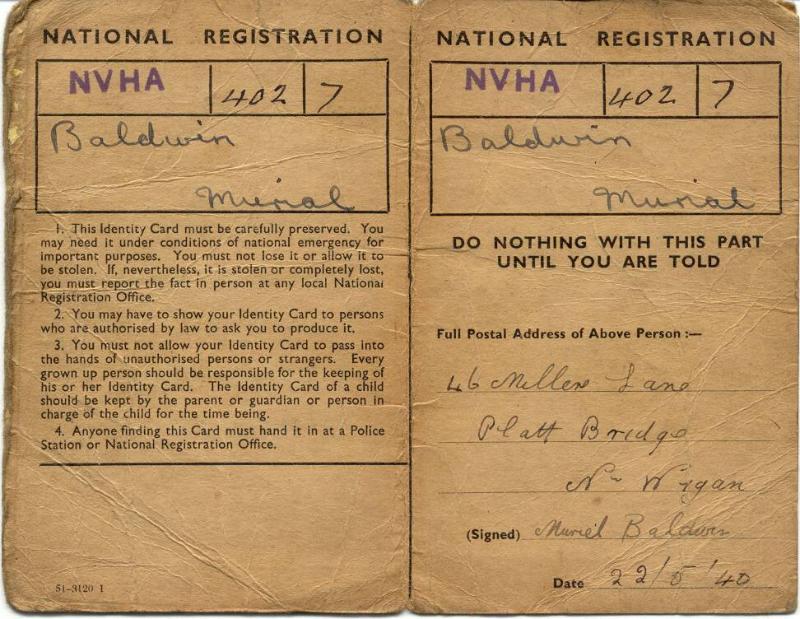 NATIONAL REGISTRATION
NVHA 402 7
Baldwin
Murial
1. This Identity Card must be carefully preserved. You
may need it under conditions of national emergency for
important purposes. You must not lose it or allow it to
be stolen. If, nevertheless, it is stolen or completely lost,
you must report the fact in person at any local National
Registration Office.
2. You may have to show your Identity Card to persons
who are authorised by law to ask you to produce it.
3. You must not allow your Identity Card to pass into
the hands of unauthorised persons or strangers. Every
grown up person should be responsible for the keeping of
his or her Identity Card. The Identity Card of a child
should be kept by the parent or guardian or person in
charge of the child for the time being.
4. Anyone finding this Card must hand it in at a Police
Station or National Registration Office.
51-3120 1
NATIONAL REGISTRATION
NVHA 402 7
Baldwin
Murial
DO NOTHING WITH THIS PART
UNTIL YOU ARE TOLD
Full Postal Address of Above Person :—
46 Millers Lane
Platt Bridge
Nr Wigan
(Signed) Muriel Baldwin
Date 22/5/'40